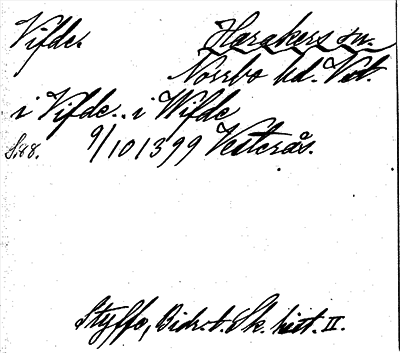 Vifde. Harakers sn.
Norrbo hd. Vstm.
i Vifde.. i Wifde
S.88. 9/10 1399 Vesterås.
Styffe, Bidr. t. Sk. hist. II.